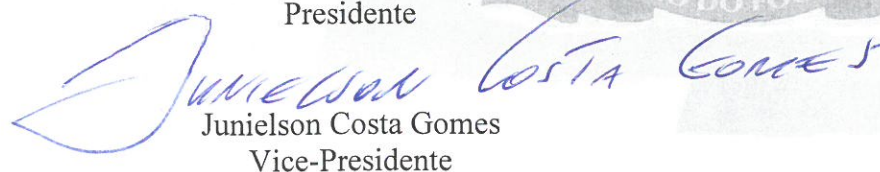 Presidente
Junielson Costa Gomes
Junielson Costa Gomes
Vice-Presidente